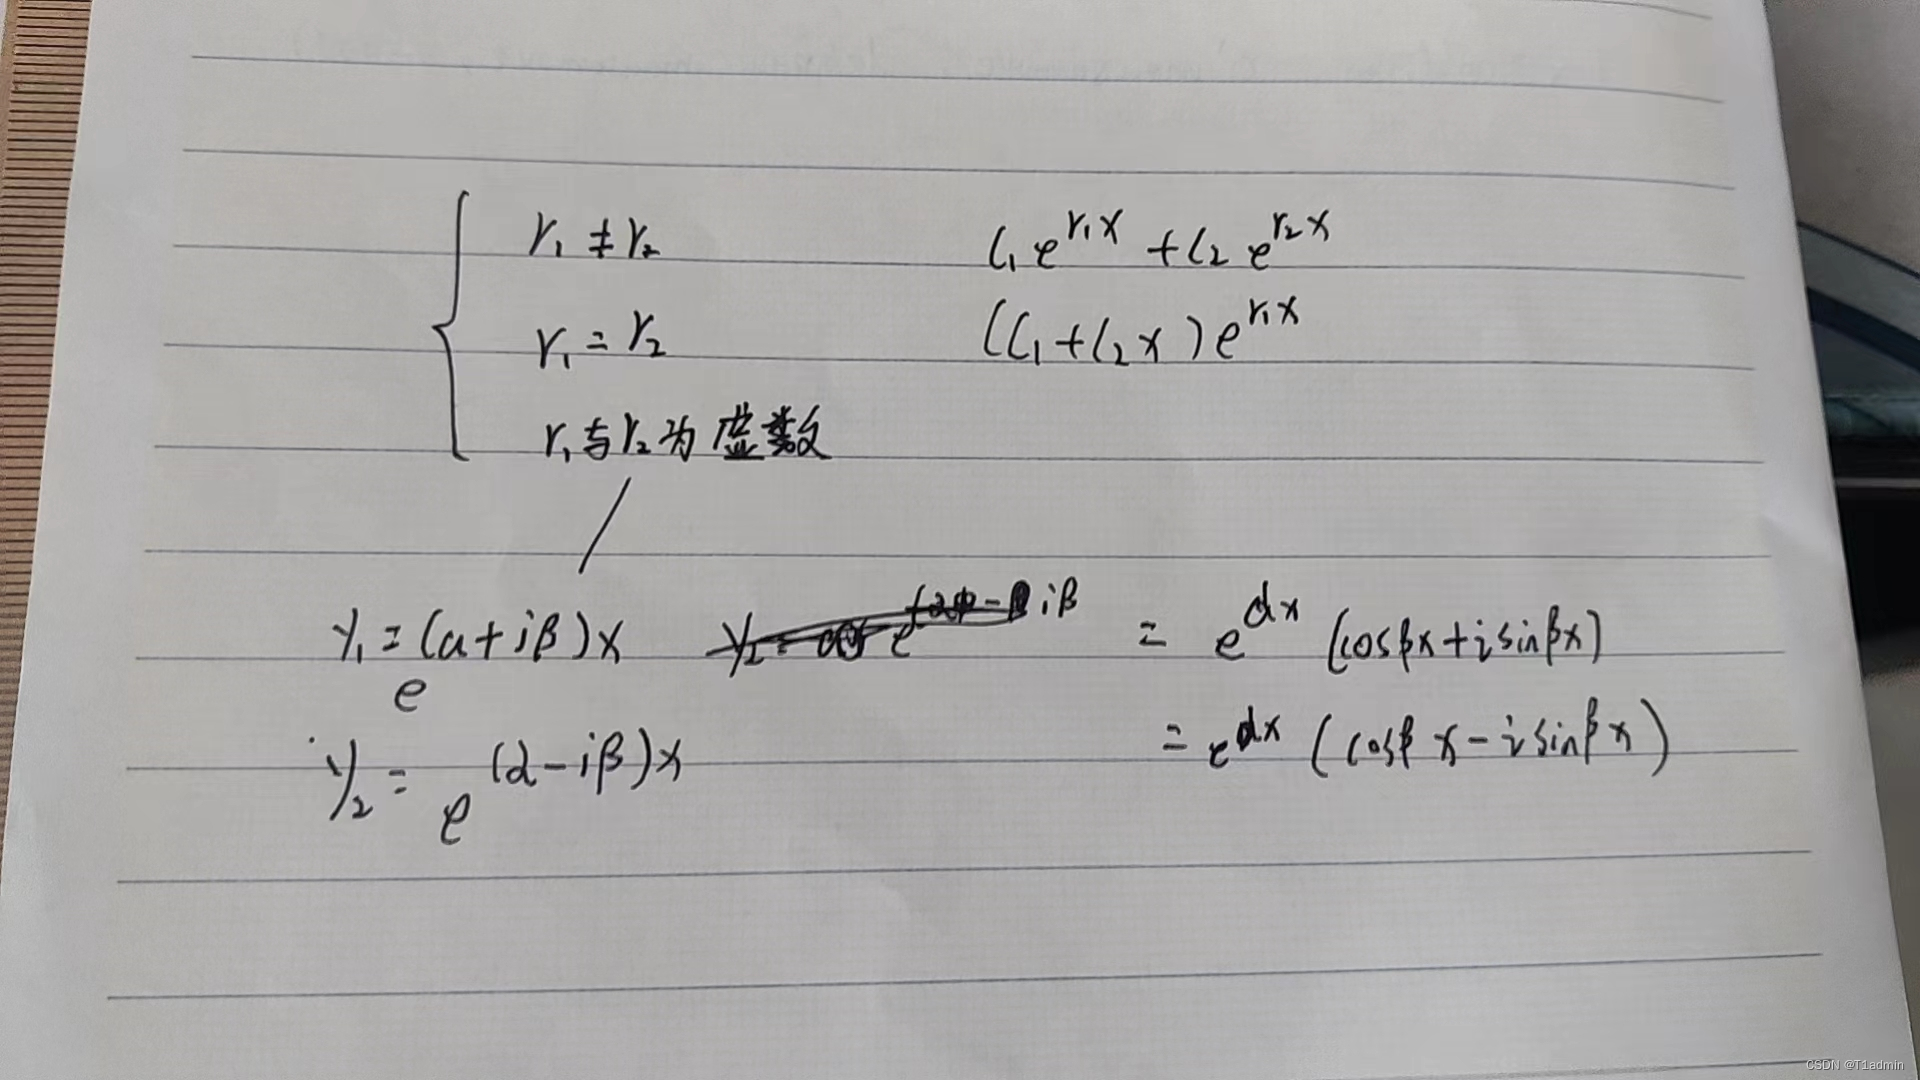 r₁ ≠ r₂ C₁e^{r₁x} + C₂e^{r₂x}
r₁ = r₂ (C₁+C₂x)e^{r₁x}
r₁与r₂为虚数
y₁ = e^{(α+iβ)x} = e^{αx}(cosβx+isinβx)
y₂ = e^{(α-iβ)x} = e^{αx}(cosβx-isinβx)
CSDN @T1admin